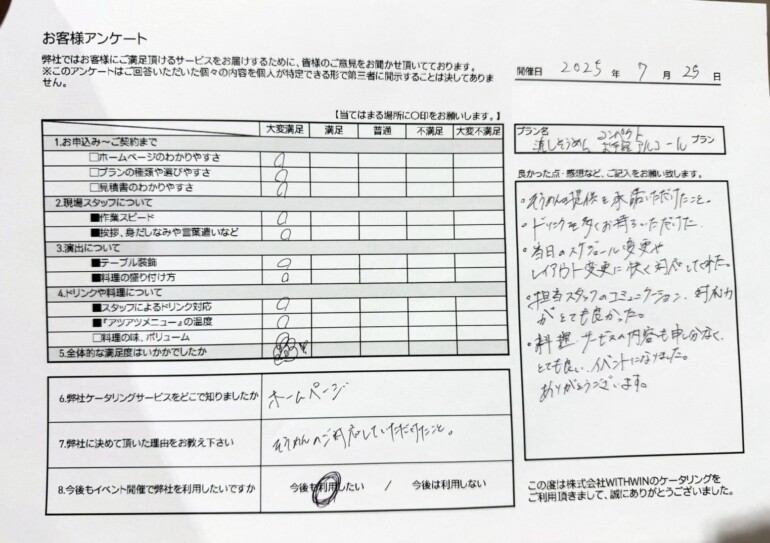 お客様アンケート
弊社ではお客様にご満足頂けるサービスをお届けするために、皆様のご意見をお聞かせ頂いております。
※このアンケートはご回答いただいた個々の内容を個人が特定できる形で第三者に開示することは決してありません。
開催日 2025 年 7 月 25 日
【当てはまる場所に○印をお願いします。】
大変満足 満足 普通 不満足 大変不満足
1.お申込み～ご契約まで
□ホームページのわかりやすさ
□プランの種類や選びやすさ
□見積書のわかりやすさ
2.現場スタッフについて
■作業スピード
■挨拶、身だしなみや言葉遣いなど
3.演出について
■テーブル装飾
■料理の盛り付け方
4.ドリンクや料理について
■スタッフによるドリンク対応
■『アツアツメニュー』の温度
□料理の味、ボリューム
5.全体的な満足度はいかかでしたか
6.弊社ケータリングサービスをどこで知りましたか
ホームページ
7.弊社に決めて頂いた理由をお教え下さい
そうめんのご対応していただけたこと。
8.今後もイベント開催で弊社を利用したいですか
今後も利用したい / 今後は利用しない
プラン名
流しそうめん コンパクト
お手軽アルコール プラン
良かった点・感想など、ご記入をお願い致します。
・そうめんの提供を承諾いただけたこと。
・ドリンクを多くお持ちいただけた
・当日のスケジュール変更や
レイアウト変更に快く対応してくれた。
・担当スタッフのコミュニケーション、対応力
がとても良かった。
・料理、サービスの内容も申し分なく、
とても良い、イベントになりました。
ありがとうございます。
この度は株式会社WITHWINのケータリングを
ご利用頂きまして、誠にありがとうございました。